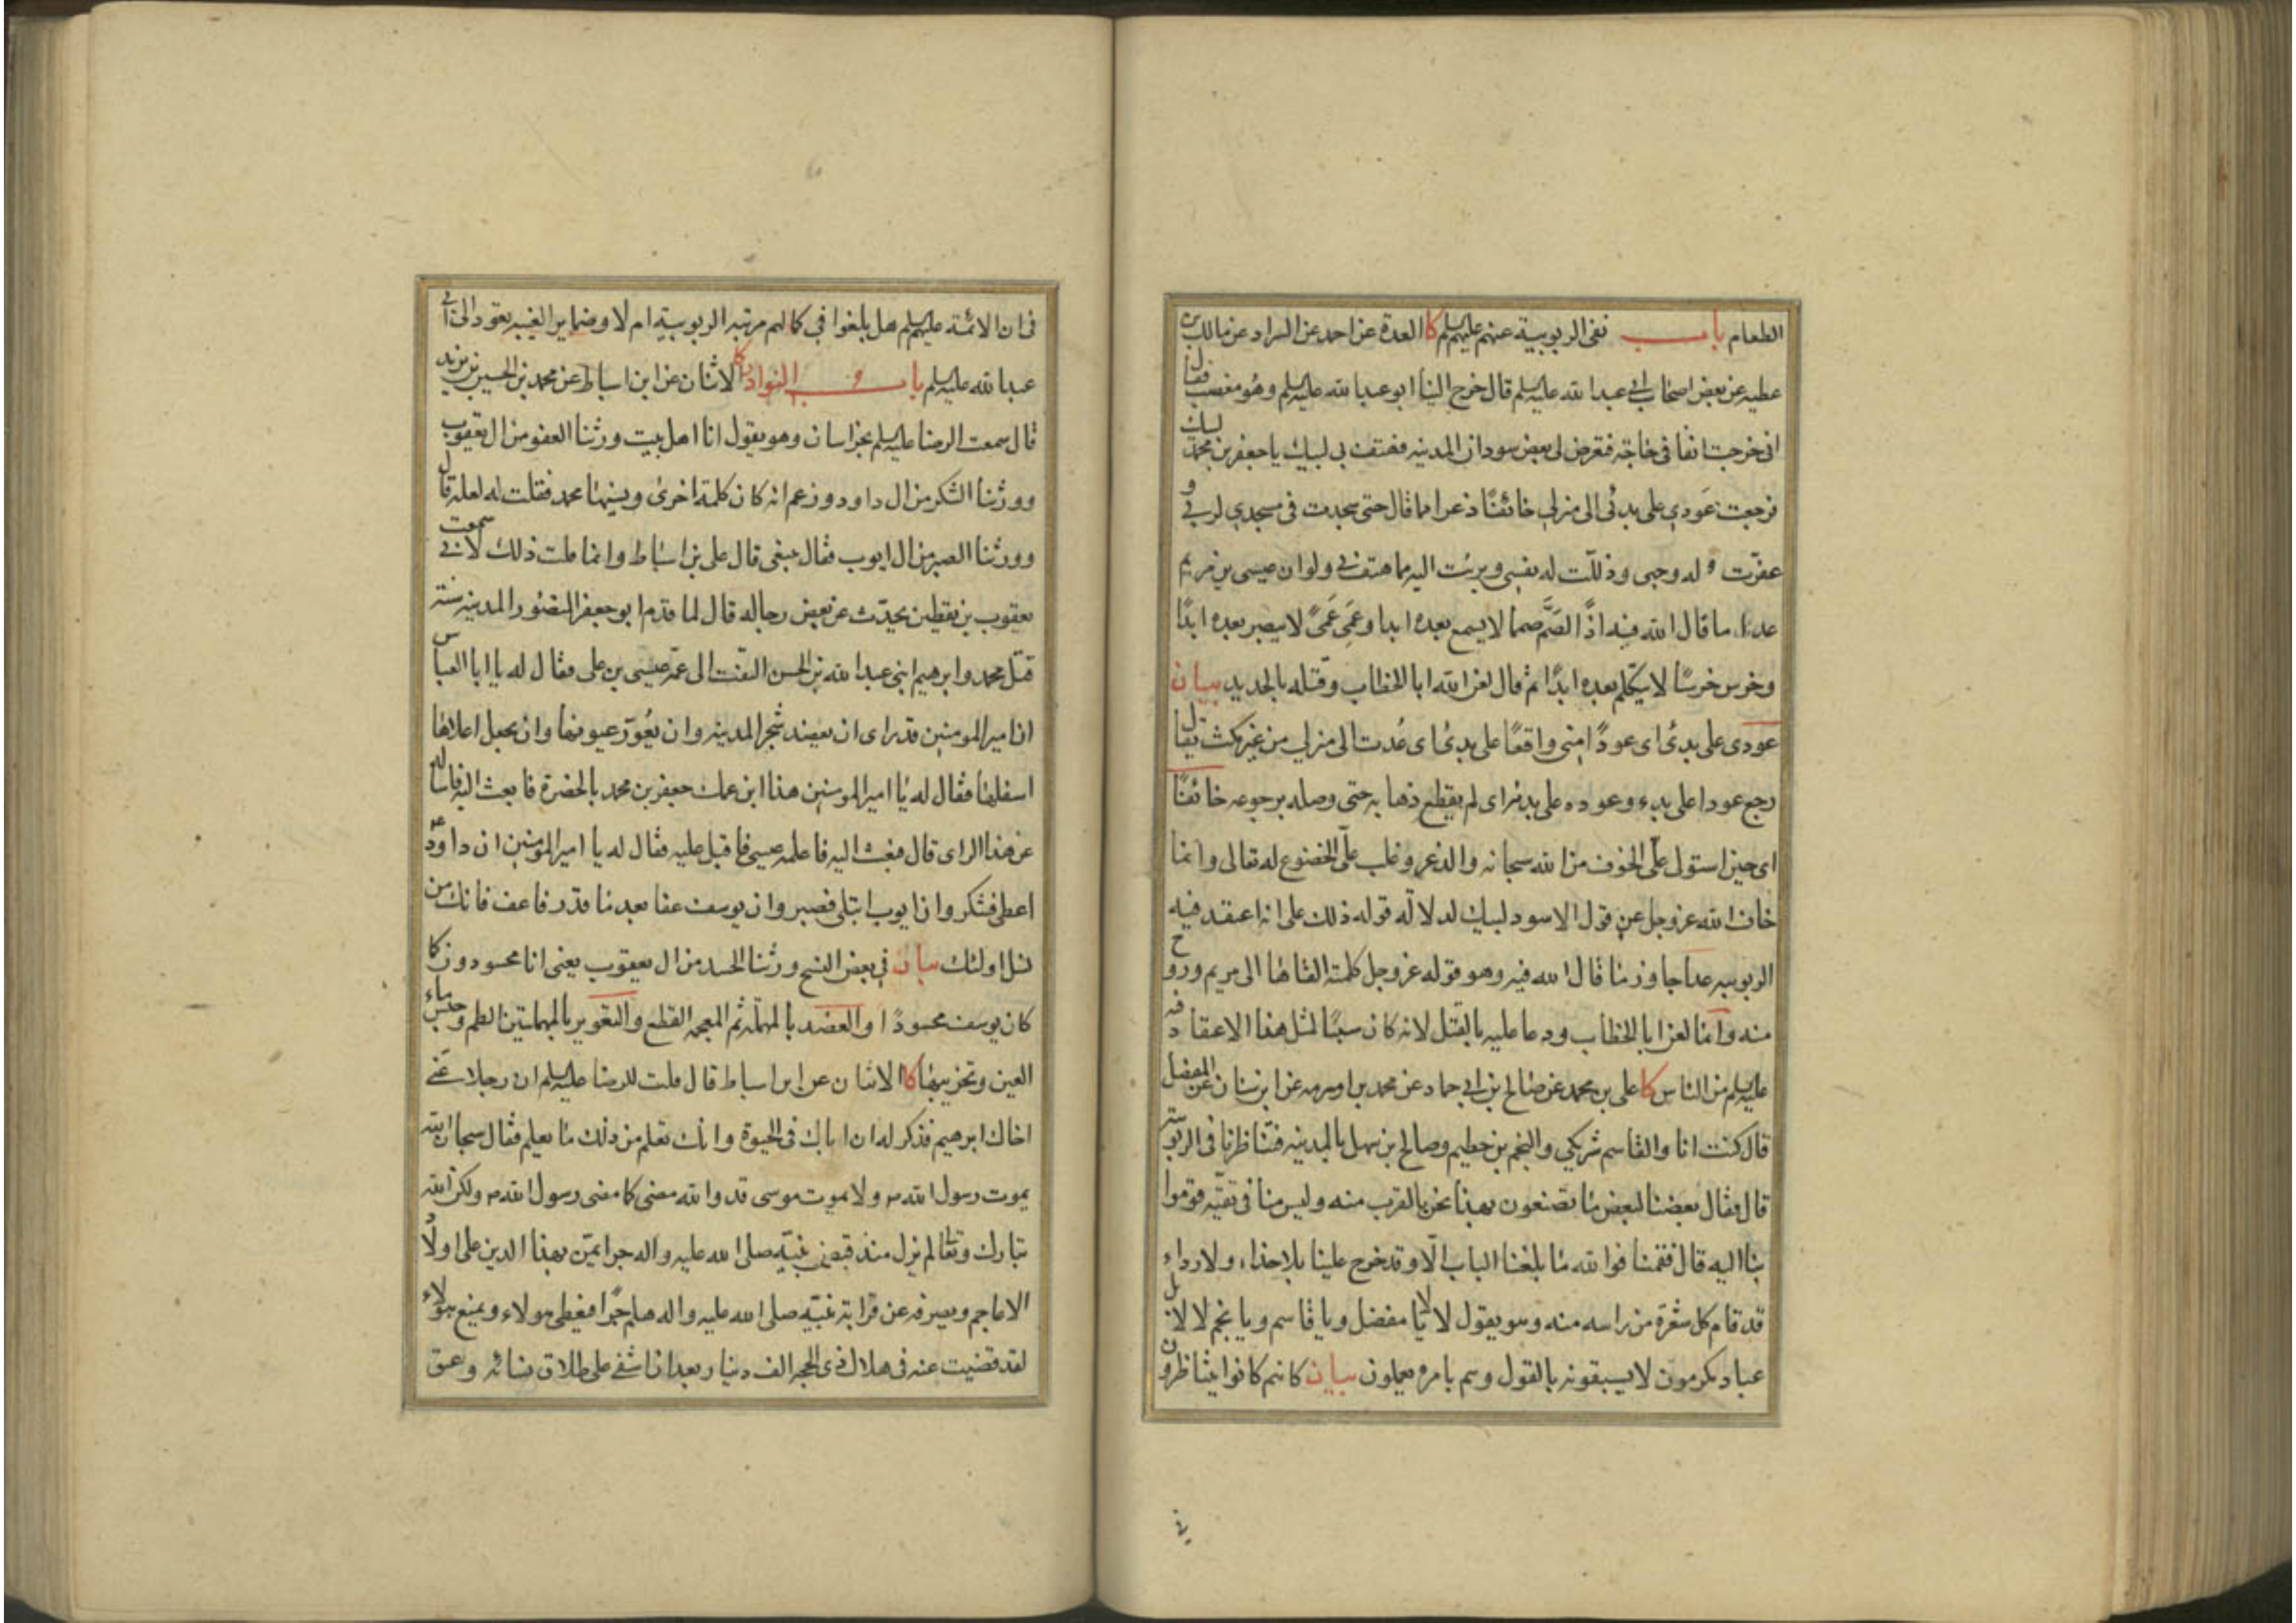 الطعام باب نفى الربوبية عنهم عليهم السلم كا العدة عن احمد عن السراد عن مالك بن
عطيه عن بعض اصحاب ابي عبد الله عليه السلم قال خرج الينا ابو عبد الله عليه السلم وهو مغضب فقال
انى خرجت انفا فى حاجة فتعرض لى بعض سودان المدينه فهتف بي لبيك يا جعفر بن محمد لبيك
فرجعت عَودي على بدئى الى منزلى خائفا ذعرا مما قال حتى سجدت فى مسجدي لربي و
عفرت له وجهى وذللت له نفسى وبرئت اليه مما هتف بي ولو ان عيسى بن مريم
عدا ما قال الله فيه اذًا لصَمَّ صما لا يسمع بعده ابدا وعَمِىَ عَمىً لا يبصر بعده ابدًا
وخرس خرسًا لا يتكلم بعده ابدًا ثم قال لعن الله ابا الخطاب وقتله بالحديد بيان
عودى على بدئى اى عودًا منى واقعًا على بدئى اى عُدت الى منزلى من غير مكث يقال
رجع عودا على بدء وعوده على بدئه اى لم يقطع ذهابه حتى وصله برجوعه خائفًا
اى حين استولى علىّ الخوف من الله سبحانه والذعر وغلب علىّ الخضوع له تعالى وانما
خاف الله عز وجل عن قول الاسود لبيك لدلالة قوله ذلك على انه اعتقد فيه
الربوبيه عدا جاوز ما قال الله فيه وهو قوله عز وجل كلمته القاها الى مريم وروح
منه وانما لعن ابا الخطاب ودعا عليه بالقتل لانه كان سببًا لمثل هذا الاعتقاد فيه
عليه السلم من الناس كا على بن محمد عن صالح بن ابي حماد عن محمد بن اورمه عن ابن سنان عن المفضل
قال كنت انا والقاسم شريكي والنجم بن حطيم وصالح بن سهل بالمدينه فتناظرنا فى الربوبيه
قال فقال بعضنا لبعض ما تصنعون بهذا نحن بالقرب منه وليس منا فى تقيّه قوموا
بنا اليه قال فقمنا فوالله ما بلغنا الباب الّا وقد خرج علينا بلا حذاء ولا رداء
قد قام كل شعرة من راسه منه وهو يقول لا لا يا مفضل ويا قاسم ويا نجم لا لا بل
عباد مكرمون لا يسبقونه بالقول وهم بامره يعملون بيان كانهم كانوا يتناظرون
فى
فى ان الائمة عليهم السلم هل بلغوا فى كمالهم مرتبه الربوبية ام لا وضماير الغيبه يعود الى ابى
عبد الله عليه السلم باب النوادر كا الاثنان عن ابن اسباط عن محمد بن الحسين بن يزيد
قال سمعت الرضا عليه السلم بخراسان وهو يقول انا اهل بيت ورثنا العفو من ال يعقوب
وورثنا الشكر من ال داود وزعم انه كان كلمة اخرى ونسيها محمد فقلت له لعله قال
وورثنا الصبر من ال ايوب فقال ينبغى قال على بن اسباط وانما قلت ذلك لانى سمعت
يعقوب بن يقطين يحدّث عن بعض رجاله قال لما قدم ابو جعفر المنصور المدينه سنة
قتل محمد وابرهيم ابنى عبد الله بن الحسن التفت الى عمه عيسى بن على فقال له يا ابا العباس
ان امير المومنين قد راى ان يعضد شجر المدينه وان يُعوّر عيونها وان يجعل اعلاها
اسفلها فقال له يا امير المومنين هذا ابن عمك جعفر بن محمد بالحضرة فابعث اليه فاساله
عن هذا الراى قال فبعث اليه فاعلمه عيسى فاقبل عليه فقال له يا امير المومنين ان داود ع
اعطى فشكر وان ايوب ابتلى فصبر وان يوسف عفا بعد ما قدر فاعف فانك من
نسل اولئك بيان في بعض النسخ ورثنا الحسد من ال يعقوب يعنى انا محسودون كما
كان يوسف محسودًا والعضد بالمهملة ثم المعجمه القطع والتعوير بالمهملتين الطم وحبس ماء
العين وتخريبها كا الاثنان عن ابن اسباط قال قلت للرضا عليه السلم ان رجلا عنى
اخاك ابرهيم فذكر له ان اباك فى الحيوة وانك تعلم من ذلك ما يعلم فقال سبحان الله
يموت رسول الله ص ولا يموت موسى قد والله مضى كما مضى رسول الله ص ولكن الله
تبارك وتعالى لم يزل منذ قبض نبيّه صلى الله عليه واله جرا يمنّ بهذا الدين على اولاد
الاعاجم ويصرفه عن قرابة نبيّه صلى الله عليه واله هلم جرّا فيعطى هولاء ويمنع هولاء
لقد قضيت عنه فى هلال ذى الحجه الف دينار بعد ان اشفى على طلاق نسائه وعتق